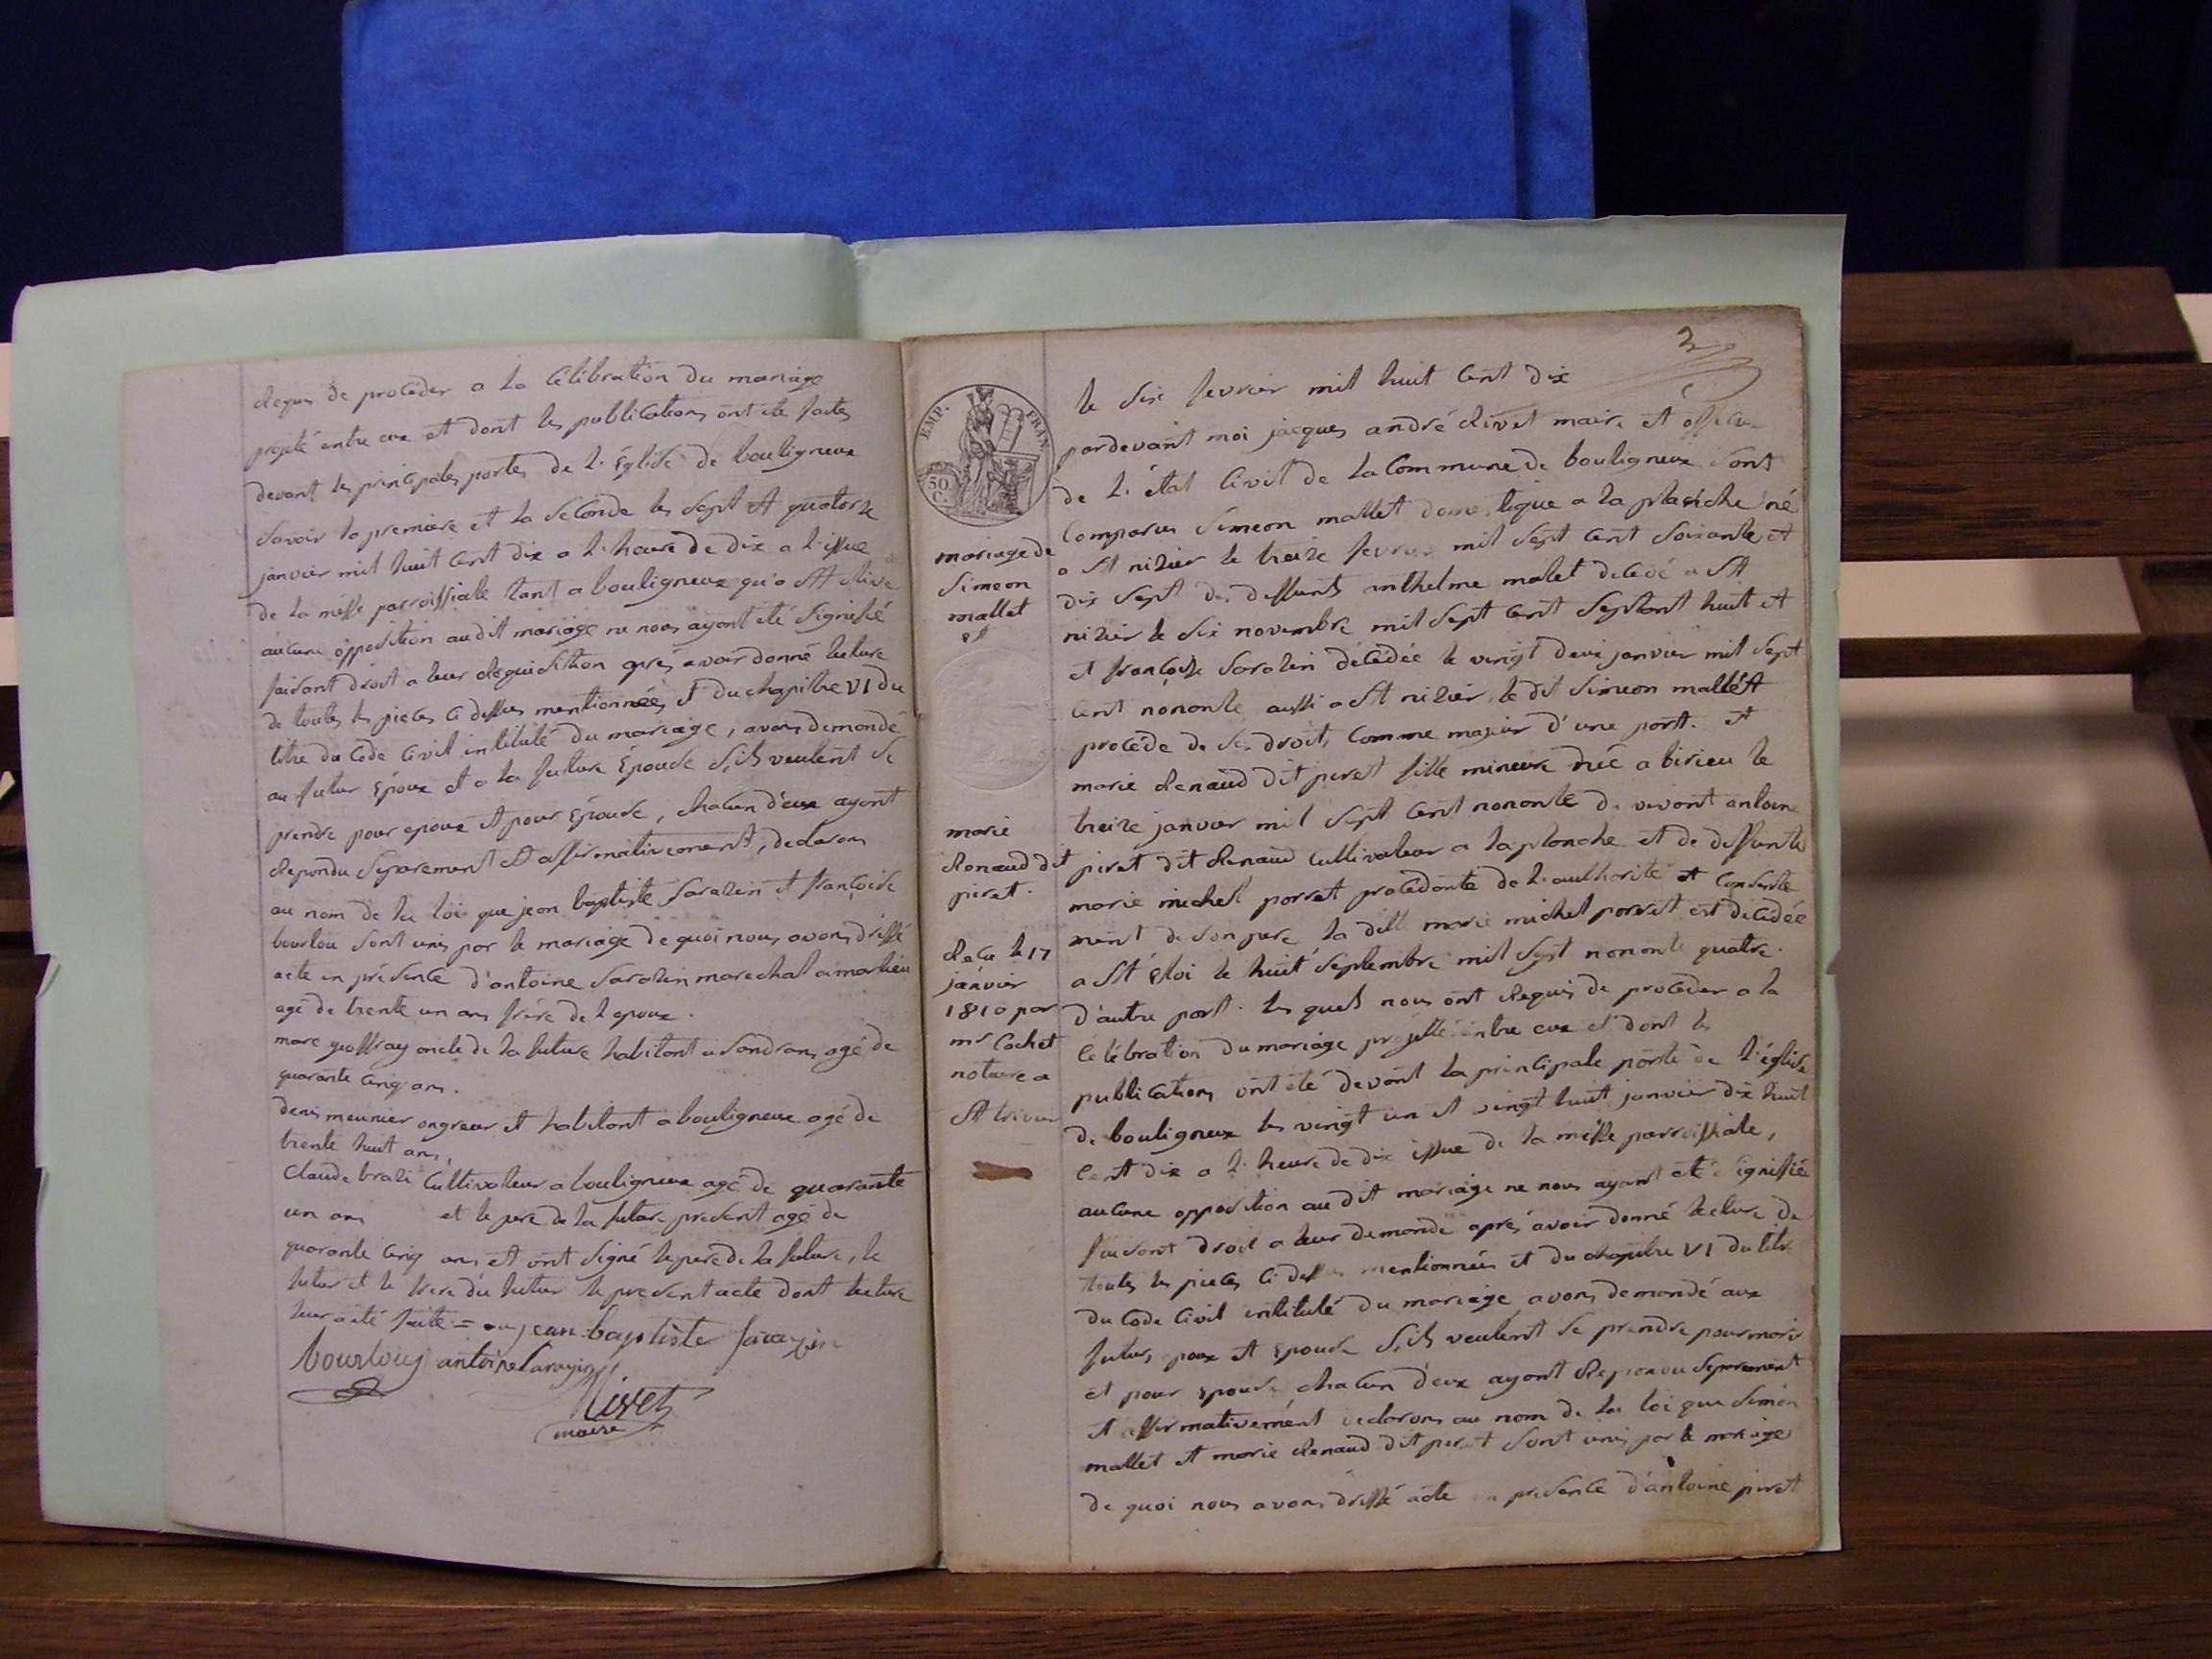 Requis de proceder a la Célébration du mariage
projeté entre eux et dont les publications ont été faites
devant les principales portes de l'Église de bouligneux
Savoir la premiere et la Seconde les Sept et quatorze
janvier mil huit Cent dix a l'heure de dix a l'issue
de la messe parroissiale tant a bouligneux qu'a St
aucune opposition audit mariage ne nous ayant été Signifié
faisant droit a leur Requisition après avoir donné lecture
de toutes les pieces Ci dessus mentionnées et du chapitre VI du
titre du Code Civil intitulé du mariage, avons demandé
au futur Époux et a la future Épouse S'ils veulent Se
prendre pour epoux et pour Épouse, chacun d'eux ayant
Repondu Séparement et affirmativement, declarons
au nom de la loi que jean baptiste Sarazin et françoise
bourlou Sont unis par le mariage de quoi nous avons dréssé
acte en présence d'antoine Sarazin marechal a marlieu
agé de trente un ans frére de l'epoux.
marc geoffray oncle de la future habitant a Sandrans agé de
quarante Cinq ans.
denis meunier ongreur et habitant a bouligneux agé de
trente huit ans,
Claude brazi Cultivateur a bouligneux agé de quarante
un ans et le pere de la future present agé de
quarante Cinq ans et ont Signé le pere de la future, le
futur et le frere du futur le present acte dont lecture
leur a été faite = jean-baptiste Sarazin
bourlouz antoine Sarazin
Rivet
maire
2
EMP. FRAN.
50 C.
mariage de
Simeon
mallet
et
marie
Renaud dit
piret.
Recu le 17
janvier
1810 par
mr Cochet
notaire a
St trivier
le Six fevrier mil huit Cent dix
pardevant moi jacques andré Rivet maire et officier
de l'état Civil de la Commune de bouligneux Sont
Comparus Simeon mallet domestique a la planche né
a St nizier le treize fevrier mil Sept Cent Soixante et
dix Sept de deffunts anthelme malet decedé a St
nizier le Six novembre mil Sept Cent Septant huit et
et françoise Sarazin décédée le vingt deux janvier mil Sept
Cent nonante aussi a St nizier, le dit Simeon mallet
procéde de Ses droits Comme majeur d'une part. et
marie Renaud dit piret fille mineure née a birieu le
treize janvier mil Sept Cent nonante de vivant antoine
piret dit Renaud Cultivateur a la planche et de deffunte
marie michel porret procédante de l'authorité et Consente
ment de son pere la ditte marie michel porret est décédée
a St Éloi le huit Septembre mil Sept nonante quatre.
d'autre part. les quels nous ont Requis de proceder a la
Célébration du mariage projetté entre eux et dont les
publications ont été devant la principale porte de l'église
de bouligneux les vingt un et vingt huit janvier dix huit
Cent dix a l'heure de dix issue de la messe parroissiale,
aucune opposition au dit mariage ne nous ayant eté Signifiée
faisant droit a leur demande aprés avoir donné lecture de
toutes les pieces Ci dessus mentionnées et du chapitre VI du titre
du Code Civil intitulé du mariage avons demandé aux
futurs epoux et Epouse S'ils veulent Se prendre pour mari
et pour Epouse chacun d'eux ayant Repondu Separement
et affirmativement declarons au nom de la loi que Siméon
mallet et marie Renaud dit piret Sont unis par le mariage
de quoi nous avons dréssé acte en presence d'antoine piret